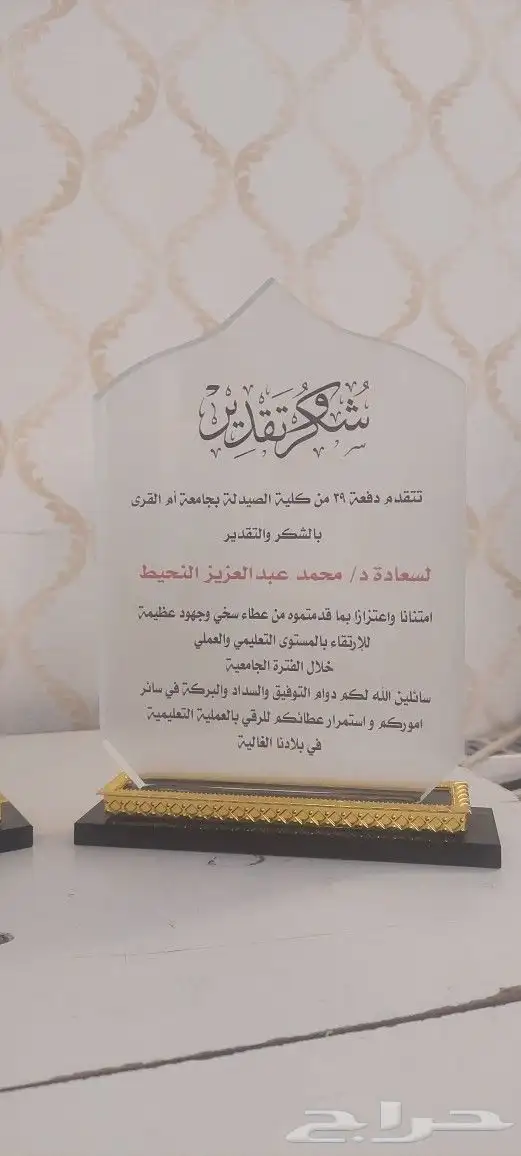 شُكْرٌ وتَقدِير
تتقدم دفعة ٣٩ من كلية الصيدلة بجامعة أم القرى
بالشكر والتقدير
لسعادة د/ محمد عبدالعزيز النحيط
امتنانا واعتزازا بما قدمتموه من عطاء سخي وجهود عظيمة
للإرتقاء بالمستوى التعليمي والعملي
خلال الفترة الجامعية
سائلين الله لكم دوام التوفيق والسداد والبركة في سائر
اموركم و استمرار عطائكم للرقي بالعملية التعليمية
في بلادنا الغالية
حراج